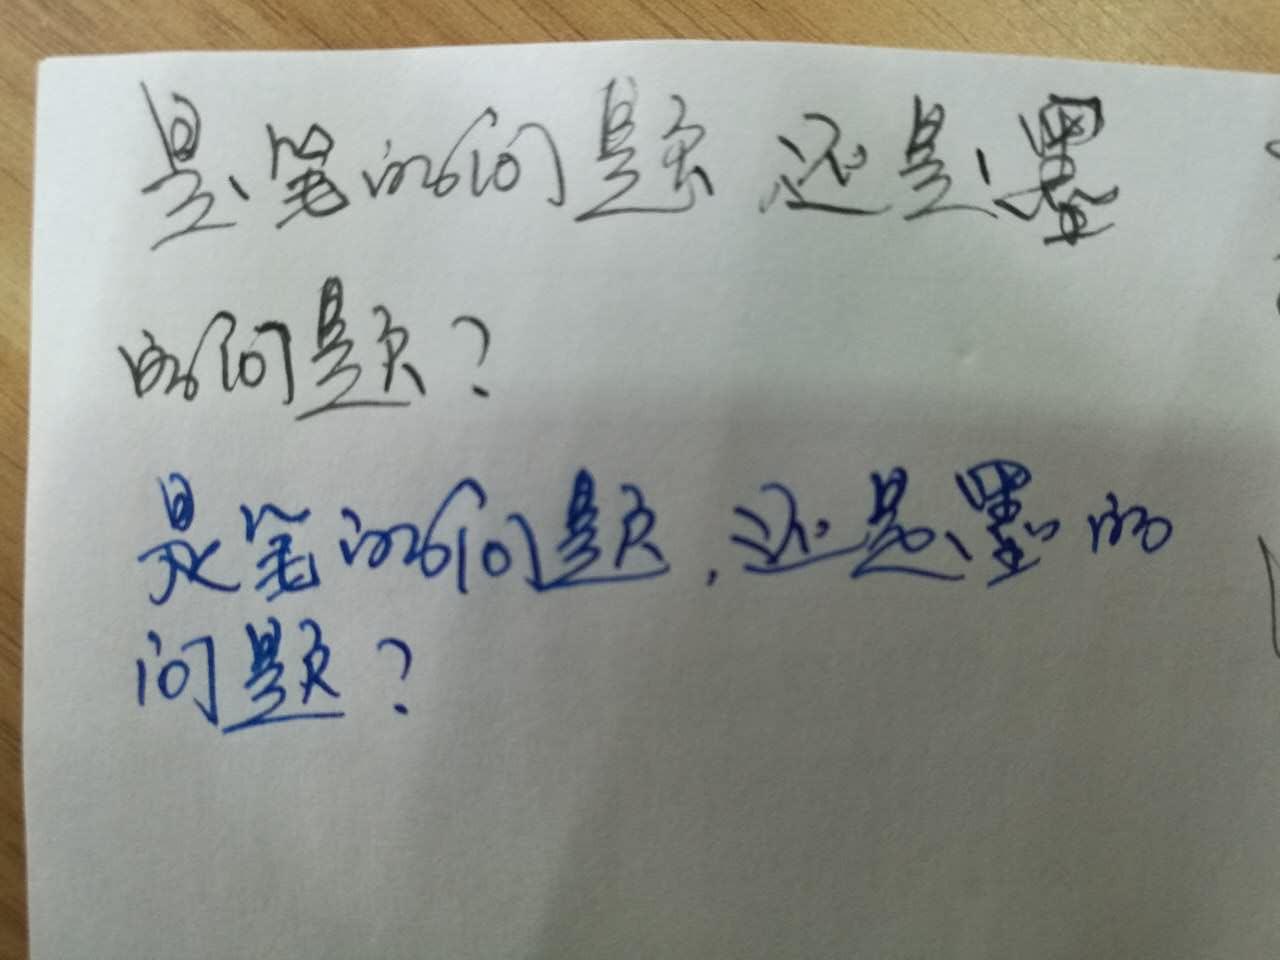 是笔的问题 还是墨
的问题?
是笔的问题,还是墨的
问题?